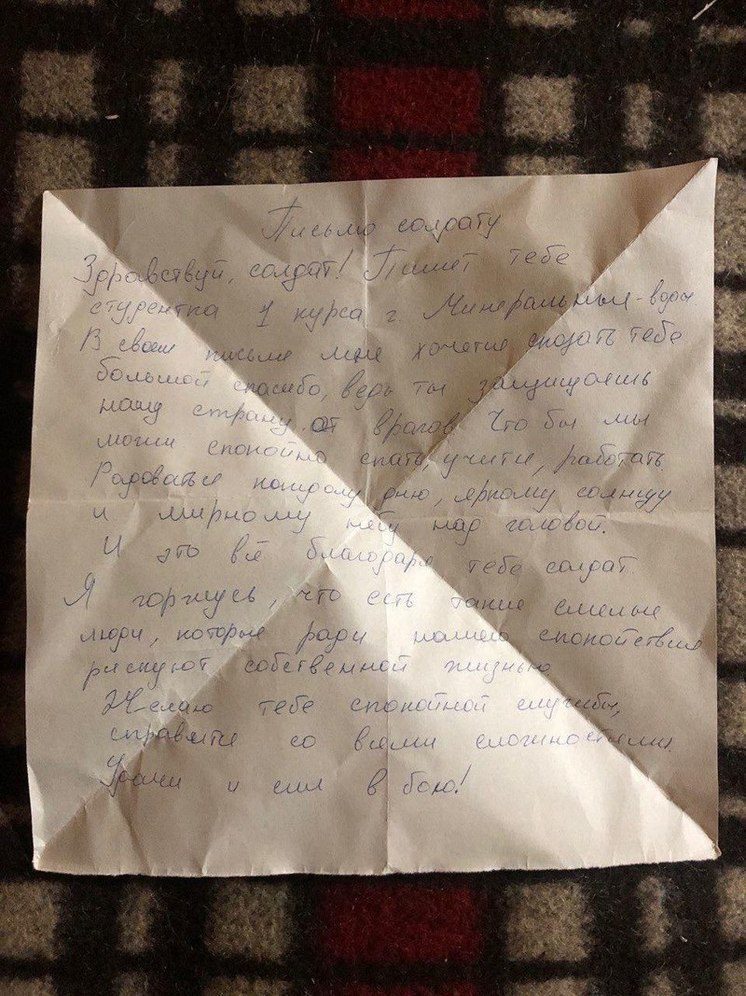 Письмо солдату
Здравствуй, солдат! Пишет тебе
студентка 1 курса г. Минеральные-воды
В своем письме мне хочется сказать тебе
большой спасибо, ведь ты защищаешь
нашу страну от врагов. Что бы мы
могли спокойно спать, учится, работать
Радоваться каждому дню, яркому солнцу
и мирному небу над головой.
И это всё благодаря тебе солдат
Я горжусь, что есть такие смелые
люди, которые ради нашего спокойствия
рискуют собственной жизнью.
Желаю тебе спокойной службы,
справится со всеми сложностями
Удачи и сил в бою!